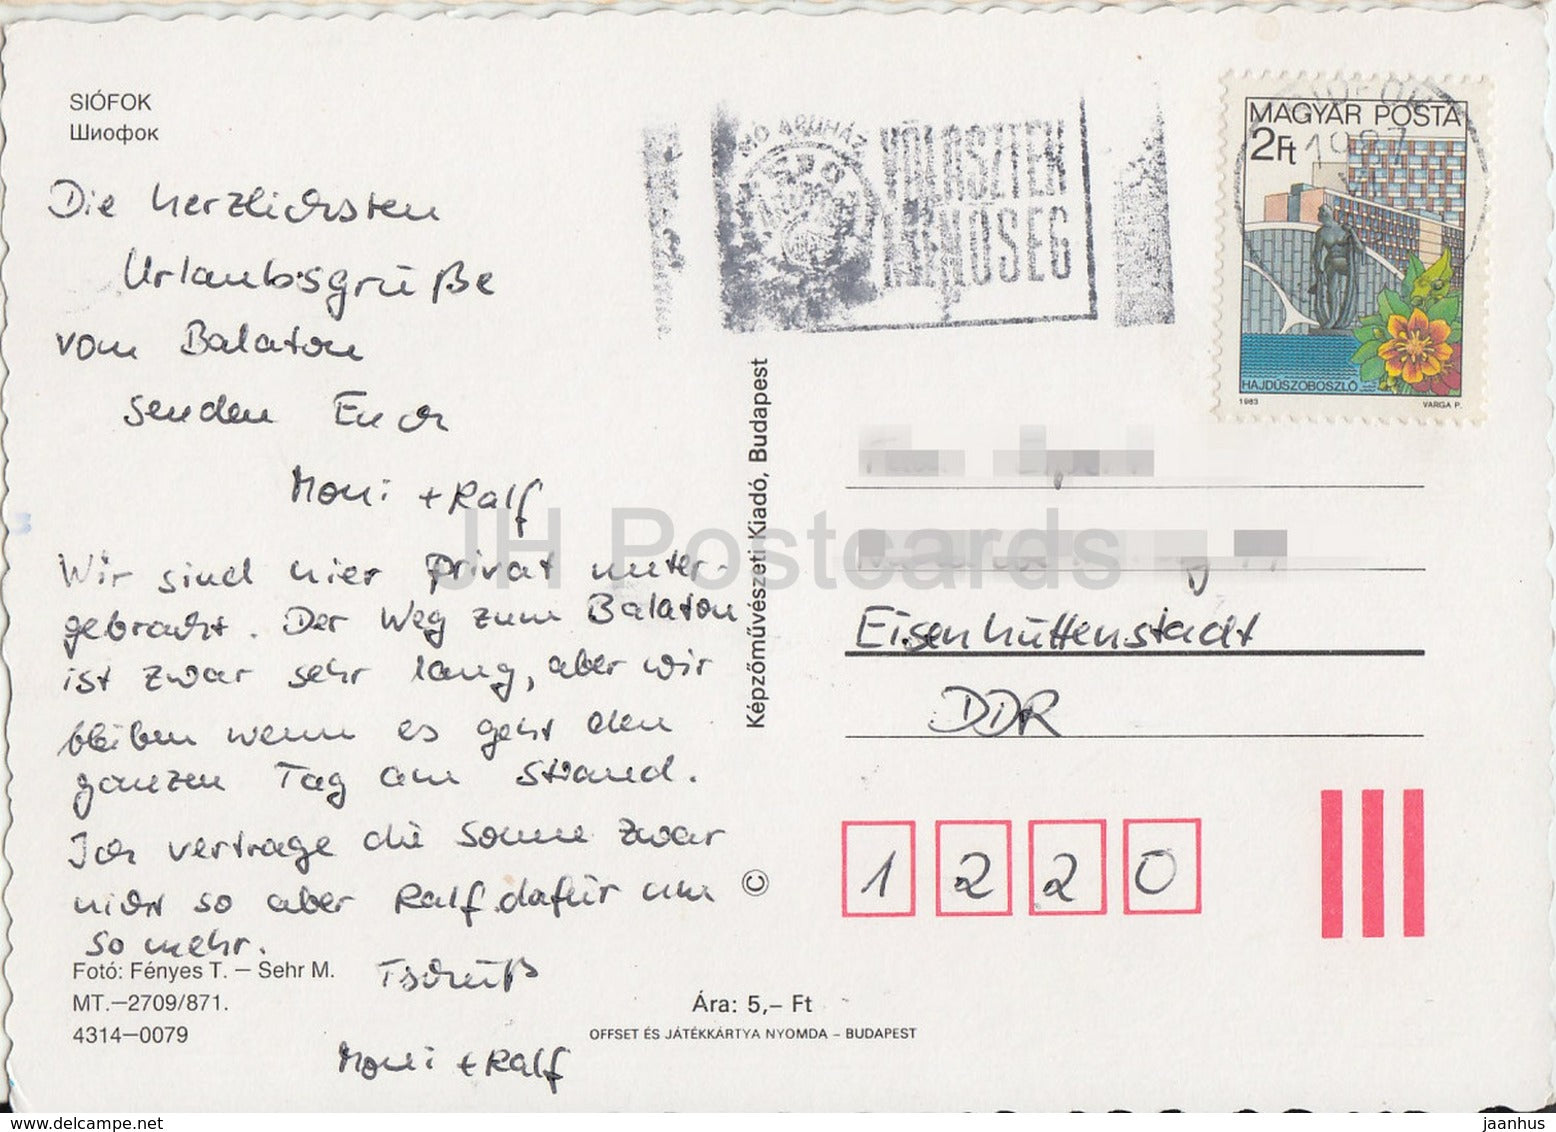 SIÓFOK
Шиофок
Die herzlichsten
Urlaubsgrüße
vom Balaton
senden Euch
Moni + Ralf
Wir sind hier privat unter-
gebracht. Der Weg zum Balaton
ist zwar sehr lang, aber wir
bleiben wenn es geht den
ganzen Tag am Strand.
Ich vertrage die Sonne zwar
nicht so aber Ralf dafür um
so mehr.
Tschüß
Moni + Ralf
Fotó: Fényes T. – Sehr M.
MT.–2709/871.
4314–0079
Ára: 5,– Ft
OFFSET ÉS JÁTÉKKÁRTYA NYOMDA – BUDAPEST
Képzőművészeti Kiadó, Budapest
©
ÁRUHÁZ
VÁLASZTÉK
MINŐSÉG
MAGYAR POSTA
2Ft
HAJDÚSZOBOSZLÓ
1983 VARGA P.
Eisenhüttenstadt
DDR
1 2 2 0
JH Postcards
delcampe.net
jaanhus